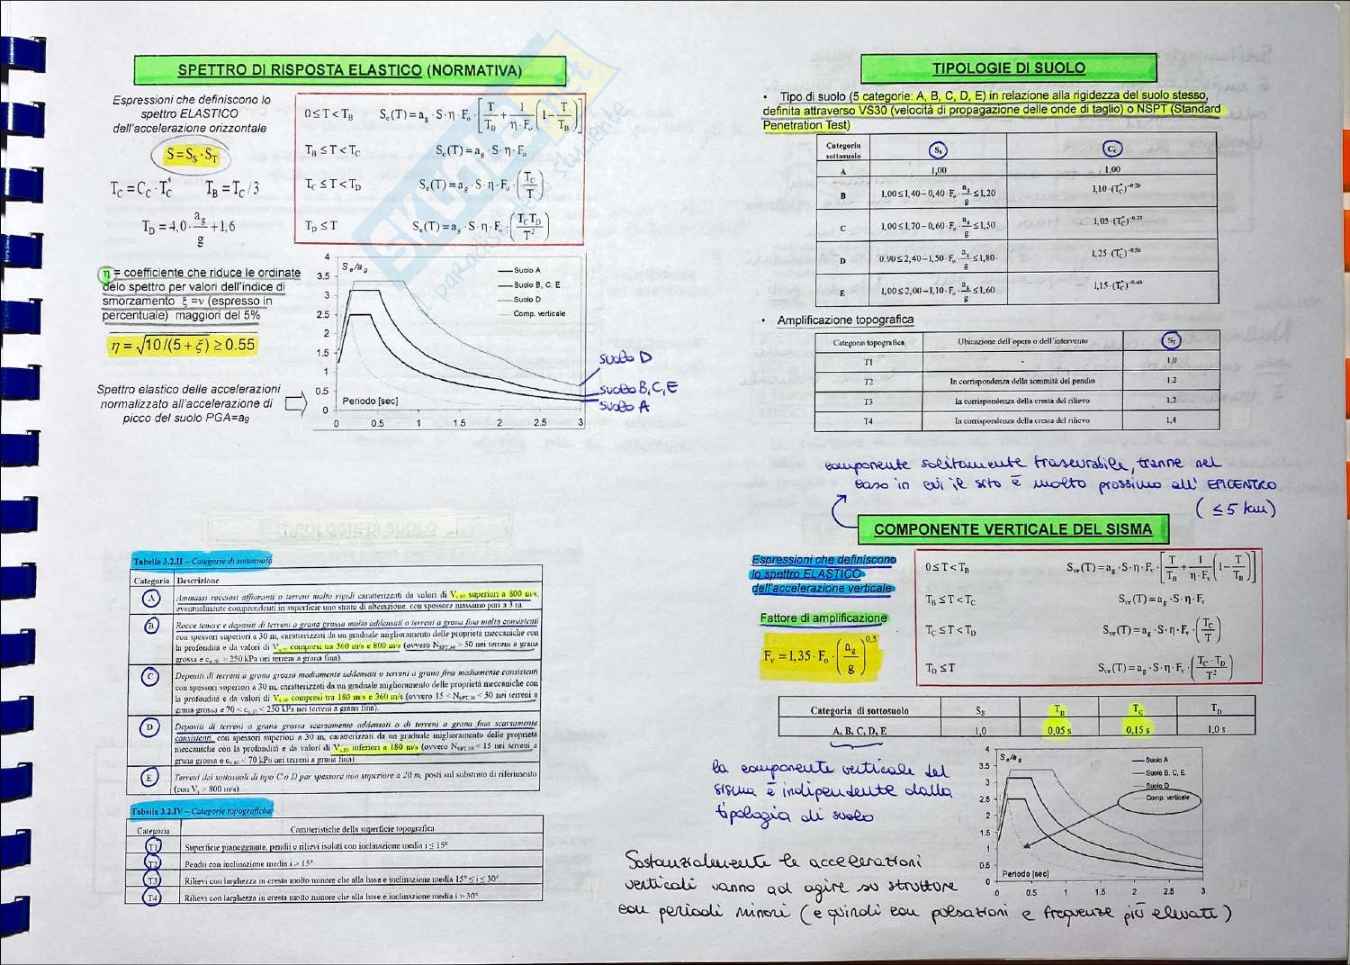 SPETTRO DI RISPOSTA ELASTICO (NORMATIVA)
Espressioni che definiscono lo
spettro ELASTICO
dell'accelerazione orizzontale
S=S_S·S_T
T_C=C_C·T_C^* T_B=T_C/3
T_D=4,0·a_g/g+1,6
0≤T<T_B S_e(T)=a_g·S·η·F_o·[T/T_B+1/(η·F_o)(1-T/T_B)]
T_B≤T<T_C S_e(T)=a_g·S·η·F_o
T_C≤T<T_D S_e(T)=a_g·S·η·F_o·(T_C/T)
T_D≤T S_e(T)=a_g·S·η·F_o·(T_C T_D/T²)
η = coefficiente che riduce le ordinate
delo spettro per valori dell'indice di
smorzamento ξ=ν (espresso in
percentuale) maggiori del 5%
η=√10/(5+ξ)≥0.55
Spettro elastico delle accelerazioni
normalizzato all'accelerazione di
picco del suolo PGA=a_g
S_e/a_g
Suolo A
Suolo B, C, E
Suolo D
Comp. verticale
4
3.5
3
2.5
2
1.5
1
0.5
0
Periodo [sec]
0 0.5 1 1.5 2 2.5 3
suolo D
suolo B,C,E
suolo A
Tabella 3.2.II – Categorie di sottosuolo
Categoria Descrizione
A Ammassi rocciosi affioranti o terreni molto rigidi caratterizzati da valori di V_s,30 superiori a 800 m/s,
eventualmente comprendenti in superficie uno strato di alterazione, con spessore massimo pari a 3 m.
B Rocce tenere e depositi di terreni a grana grossa molto addensati o terreni a grana fina molto consistenti
con spessori superiori a 30 m, caratterizzati da un graduale miglioramento delle proprietà meccaniche con
la profondità e da valori di V_s,30 compresi tra 360 m/s e 800 m/s (ovvero N_SPT,30 > 50 nei terreni a grana
grossa e c_u,30 > 250 kPa nei terreni a grana fina).
C Depositi di terreni a grana grossa mediamente addensati o terreni a grana fina mediamente consistenti
con spessori superiori a 30 m, caratterizzati da un graduale miglioramento delle proprietà meccaniche con
la profondità e da valori di V_s,30 compresi tra 180 m/s e 360 m/s (ovvero 15 < N_SPT,30 < 50 nei terreni a
grana grossa e 70 < c_u,30 < 250 kPa nei terreni a grana fina).
D Depositi di terreni a grana grossa scarsamente addensati o di terreni a grana fina scarsamente
consistenti, con spessori superiori a 30 m, caratterizzati da un graduale miglioramento delle proprietà
meccaniche con la profondità e da valori di V_s,30 inferiori a 180 m/s (ovvero N_SPT,30 < 15 nei terreni a
grana grossa e c_u,30 < 70 kPa nei terreni a grana fina).
E Terreni dei sottosuoli di tipo C o D per spessore non superiore a 20 m, posti sul substrato di riferimento
(con V_s > 800 m/s)
Tabella 3.2.IV – Categorie topografiche
Categoria Caratteristiche della superficie topografica
T1 Superficie pianeggiante, pendii e rilievi isolati con inclinazione media i ≤ 15°
T2 Pendii con inclinazione media i > 15°
T3 Rilievi con larghezza in cresta molto minore che alla base e inclinazione media 15° ≤ i ≤ 30°
T4 Rilievi con larghezza in cresta molto minore che alla base e inclinazione media i > 30°
TIPOLOGIE DI SUOLO
• Tipo di suolo (5 categorie: A, B, C, D, E) in relazione alla rigidezza del suolo stesso,
definita attraverso VS30 (velocità di propagazione delle onde di taglio) o NSPT (Standard
Penetration Test)
Categoria sottosuolo S_S C_C
A 1,00 1,00
B 1,00≤1,40-0,40·F_o·a_g/g≤1,20 1,10·(T_C^*)^-0,20
C 1,00≤1,70-0,60·F_o·a_g/g≤1,50 1,05·(T_C^*)^-0,33
D 0,90≤2,40-1,50·F_o·a_g/g≤1,80 1,25·(T_C^*)^-0,50
E 1,00≤2,00-1,10·F_o·a_g/g≤1,60 1,15·(T_C^*)^-0,40
• Amplificazione topografica
Categoria topografica Ubicazione dell'opera o dell'intervento S_T
T1 - 1,0
T2 In corrispondenza della sommità del pendio 1,2
T3 In corrispondenza della cresta del rilievo 1,2
T4 In corrispondenza della cresta del rilievo 1,4
componente solitamente trascurabile, tranne nel
caso in cui il sito è molto prossimo all' EPICENTRO
(≤5 km)
COMPONENTE VERTICALE DEL SISMA
Espressioni che definiscono
lo spettro ELASTICO
dell'accelerazione verticale
Fattore di amplificazione
F_v=1,35·F_o·(a_g/g)^0,5
0≤T<T_B S_ve(T)=a_g·S·η·F_v·[T/T_B+1/(η·F_v)(1-T/T_B)]
T_B≤T<T_C S_ve(T)=a_g·S·η·F_v
T_C≤T<T_D S_ve(T)=a_g·S·η·F_v·(T_C/T)
T_D≤T S_ve(T)=a_g·S·η·F_v·(T_C·T_D/T²)
Categoria di sottosuolo S_S T_B T_C T_D
A, B, C, D, E 1,0 0,05 s 0,15 s 1,0 s
la componente verticale del
sisma è indipendente dalla
tipologia di suolo
S_e/a_g
Suolo A
Suolo B, C, E
Suolo D
Comp. verticale
4
3.5
3
2.5
2
1.5
1
0.5
0
Periodo [sec]
0 0.5 1 1.5 2 2.5 3
Sostanzialmente le accelerazioni
verticali vanno ad agire su strutture
con periodi minori (e quindi con pulsazioni e frequenze più elevate)